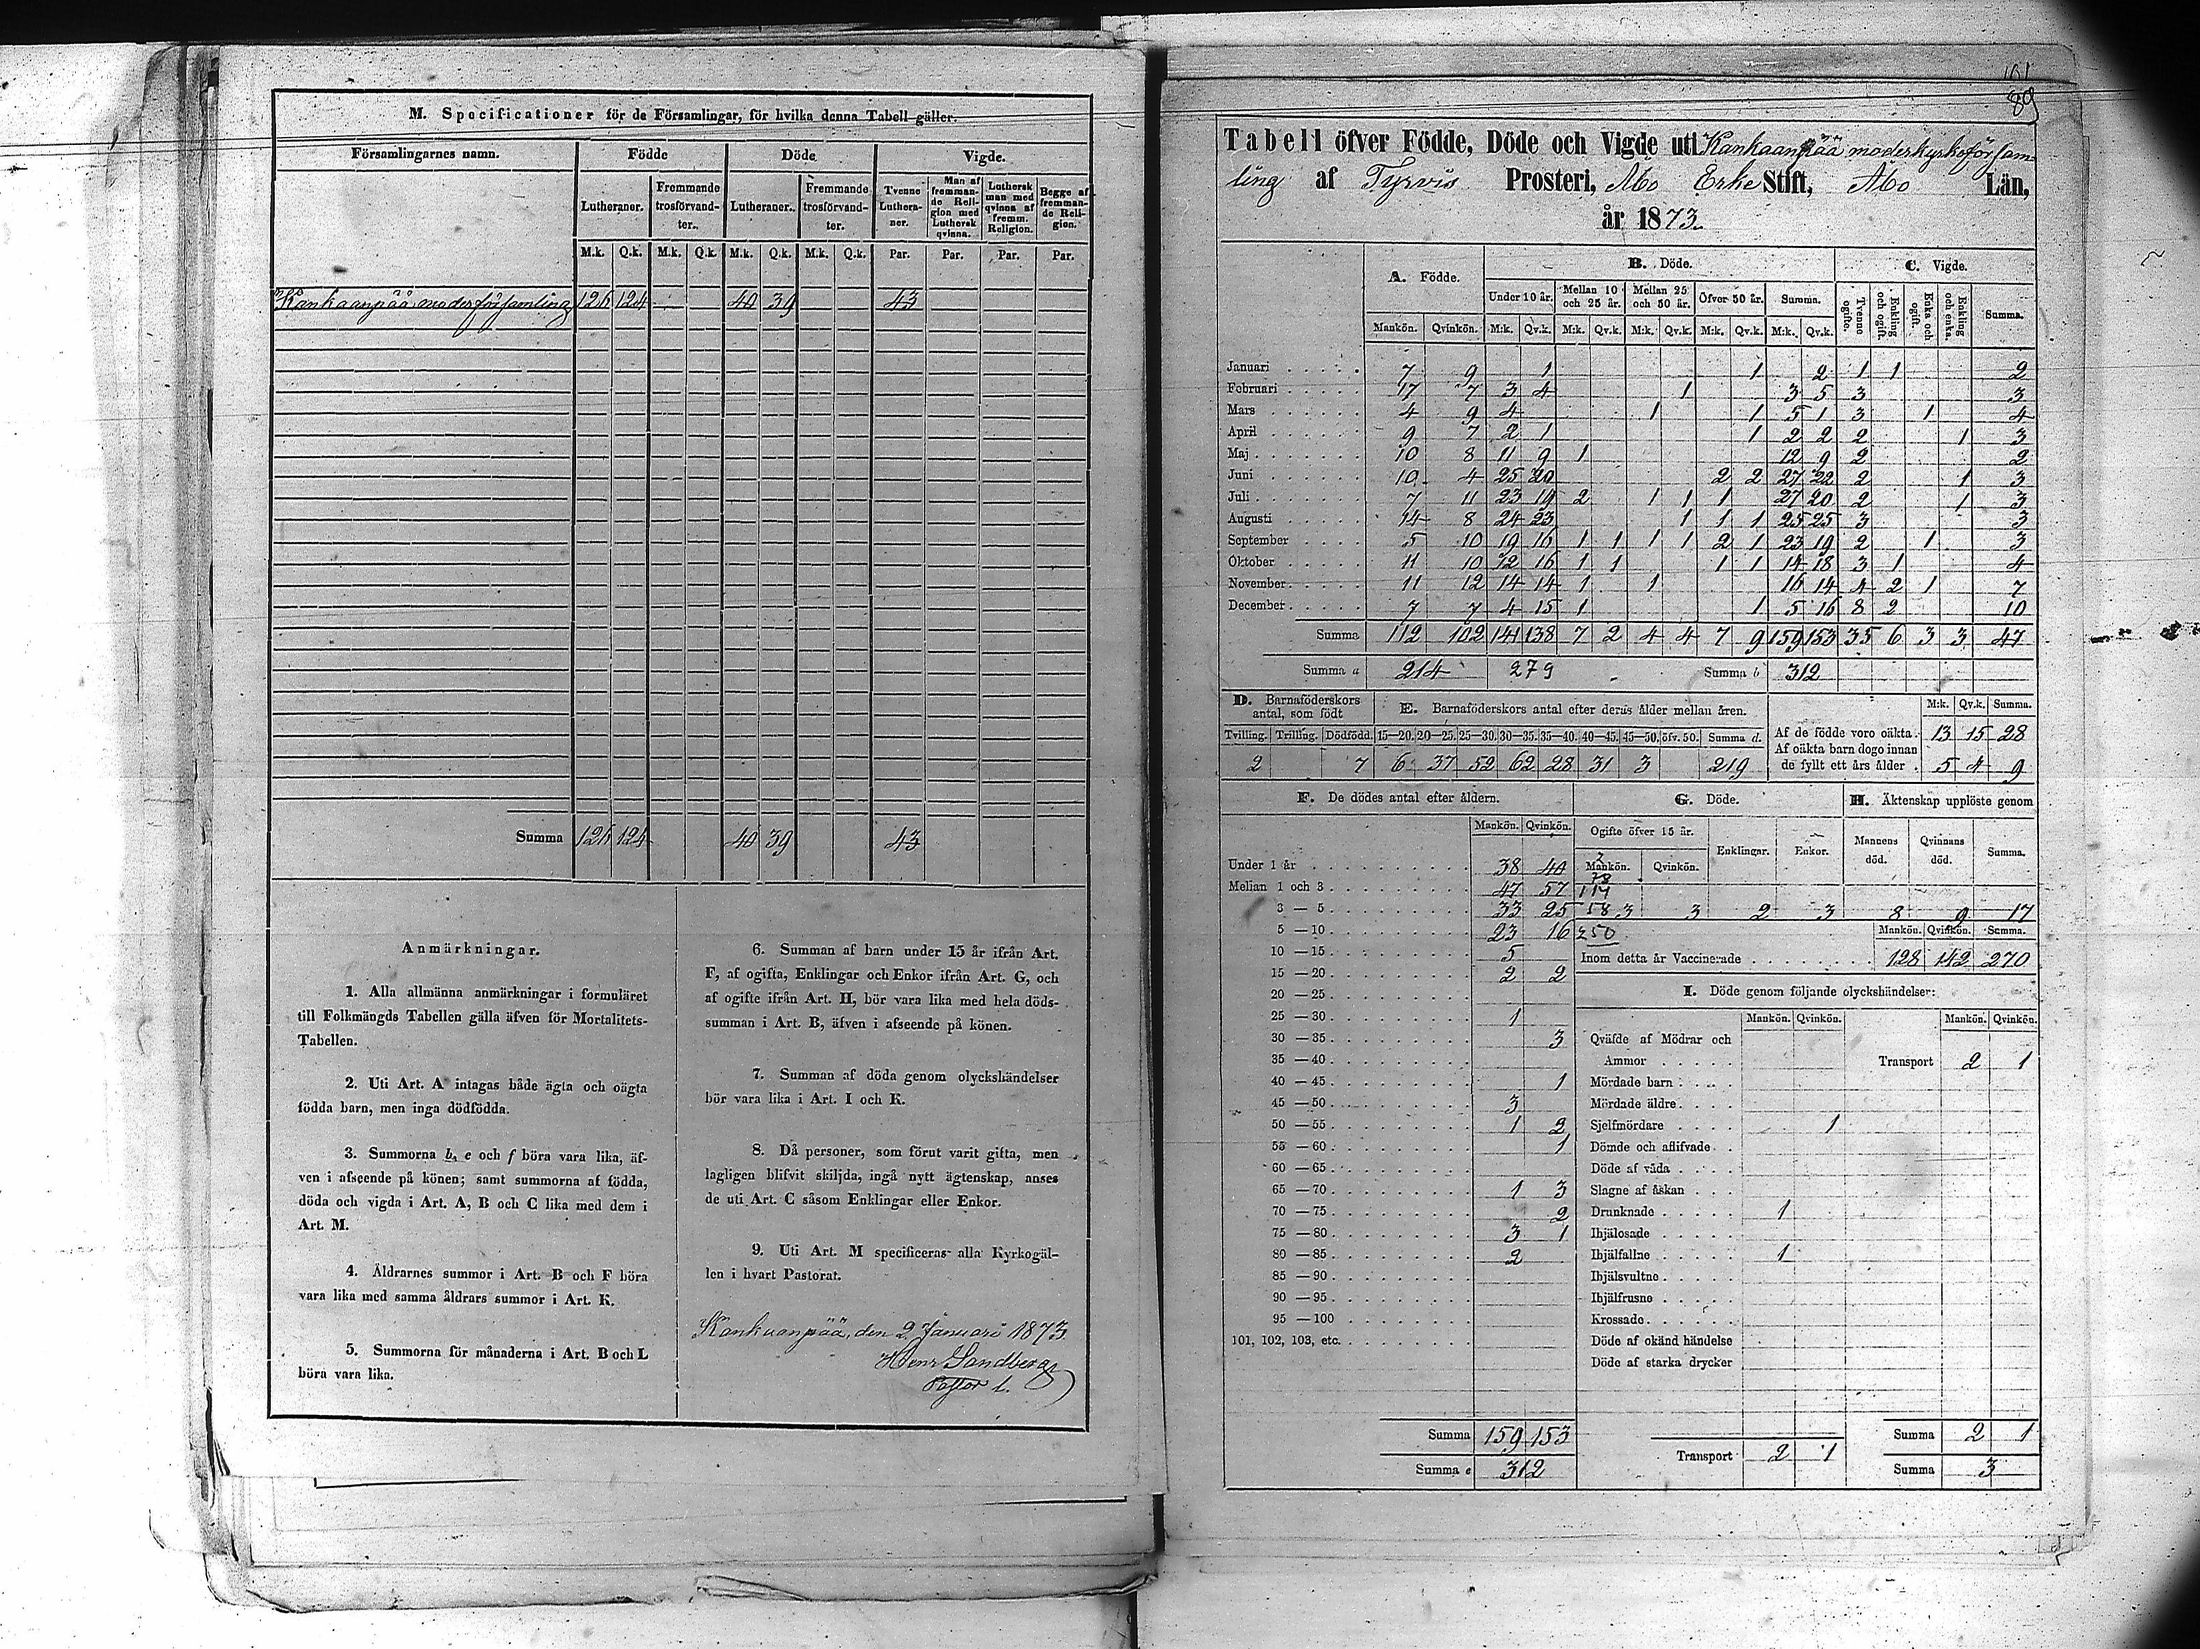 M. Specificationer för de Församlingar, för hvilka denna Tabell gäller.
Församlingarnes namn. Födde Döde Vigde.
Lutheraner. Fremmande trosförvandter. Lutheraner. Fremmande trosförvandter. Tvenne Lutheraner. Man af fremmande Religion med Luthersk qvinna. Luthersk man med qvinna af fremm. Religion. Begge af fremmande Religion.
M.k. Q.k. M.k. Q.k. M.k. Q.k. M.k. Q.k. Par. Par. Par. Par.
Kankaanpää moderförsamling 126 124 40 39 43
Summa 126 124 40 39 43
Anmärkningar.
1. Alla allmänna anmärkningar i formuläret
till Folkmängds Tabellen gälla äfven för Mortalitets-
Tabellen.
2. Uti Art. A intagas både ägta och oägta
födda barn, men inga dödfödda.
3. Summorna b, e och f böra vara lika, äf-
ven i afseende på könen; samt summorna af födda,
döda och vigda i Art. A, B och C lika med dem i
Art. M.
4. Åldrarnes summor i Art. B och F böra
vara lika med samma åldrars summor i Art. K.
5. Summorna för månaderna i Art. B och L
böra vara lika.
6. Summan af barn under 15 år ifrån Art.
F, af ogifta, Enklingar och Enkor ifrån Art. G, och
af ogifte ifrån Art. H, bör vara lika med hela döds-
summan i Art. B, äfven i afseende på könen.
7. Summan af döda genom olyckshändelser
bör vara lika i Art. I och K.
8. Då personer, som förut varit gifta, men
lagligen blifvit skiljda, ingå nytt ägtenskap, anses
de uti Art. C såsom Enklingar eller Enkor.
9. Uti Art. M specificeras alla Kyrkogäl-
len i hvart Pastorat.
Kankaanpää, den 2 Januari 1873
Henr Sandberg
Pastor l.
101
89
Tabell öfver Födde, Döde och Vigde uti Kankaanpää moderkyrkoförsam-
ling af Tyrvis Prosteri, Åbo Erke Stift, Åbo Län,
år 1873.
A. Födde. B. Döde. C. Vigde.
Under 10 år. Mellan 10 och 25 år. Mellan 25 och 50 år. Öfver 50 år. Summa. Tvenne ogifte. Enkling och ogift. Enka och ogift. Enkling och enka. Summa.
Mankön. Qvinkön. M:k. Qv.k. M:k. Qv.k. M:k. Qv.k. M:k. Qv.k. M:k. Qv.k.
Januari 7 9 1 1 2 1 1 2
Februari 17 7 3 4 1 3 5 3 3
Mars 4 9 4 1 1 5 1 3 1 4
April 9 7 2 1 1 2 2 2 1 3
Maj 10 8 11 9 1 12 9 2 2
Juni 10 4 25 20 2 2 27 22 2 1 3
Juli 7 11 23 19 2 1 1 1 27 20 2 1 3
Augusti 14 8 24 23 1 1 1 25 25 3 3
September 5 10 19 16 1 1 1 1 2 1 23 19 2 1 3
Oktober 11 10 12 16 1 1 1 1 14 18 3 1 4
November 11 12 14 14 1 1 16 14 4 2 1 7
December 7 7 4 15 1 1 5 16 8 2 10
Summa 112 102 141 138 7 2 4 4 7 9 159 153 35 6 3 3 47
Summa a 214 279 Summa b 312
D. Barnaföderskors antal, som födt E. Barnaföderskors antal efter deras ålder mellan åren. M:k. Qv.k. Summa.
Tvilling. Trilling. Dödfödd. 15—20. 20—25. 25—30. 30—35. 35—40. 40—45. 45—50. öfv. 50. Summa d.
2 7 6 37 52 62 28 31 3 219
Af de födde voro oäkta. 13 15 28
Af oäkta barn dogo innan
de fyllt ett års ålder . 5 4 9
F. De dödes antal efter åldern.
Mankön. Qvinkön.
Under 1 år 38 40
Mellan 1 och 3 47 57
3 — 5 33 25
5 — 10 23 16
10 — 15 5
15 — 20 2 2
20 — 25
25 — 30 1
30 — 35 3
35 — 40
40 — 45 1
45 — 50 3
50 — 55 1 2
55 — 60 1
60 — 65
65 — 70 1 3
70 — 75 2
75 — 80 3 1
80 — 85 2
85 — 90
90 — 95
95 — 100
101, 102, 103, etc.
Summa 159 153
Summa e 312
G. Döde. H. Äktenskap upplöste genom
Ogifte öfver 15 år. Enklingar. Enkor. Mannens död. Qvinnans död. Summa.
Mankön. Qvinkön.
78
58 3 3 2 3 8 9 17
250
Mankön. Qvinkön. Summa.
Inom detta år Vaccinerade 128 142 270
I. Döde genom följande olyckshändelser:
Mankön. Qvinkön. Mankön. Qvinkön.
Qväfde af Mödrar och
Ammor Transport 2 1
Mördade barn
Mördade äldre
Sjelfmördare 1
Dömde och aflifvade
Döde af våda
Slagne af åskan
Drunknade 1
Ihjälosade
Ihjälfallne 1
Ihjälsvultne
Ihjälfrusne
Krossade
Döde af okänd händelse
Döde af starka drycker
Transport 2 1
Summa 2 1
Summa 3